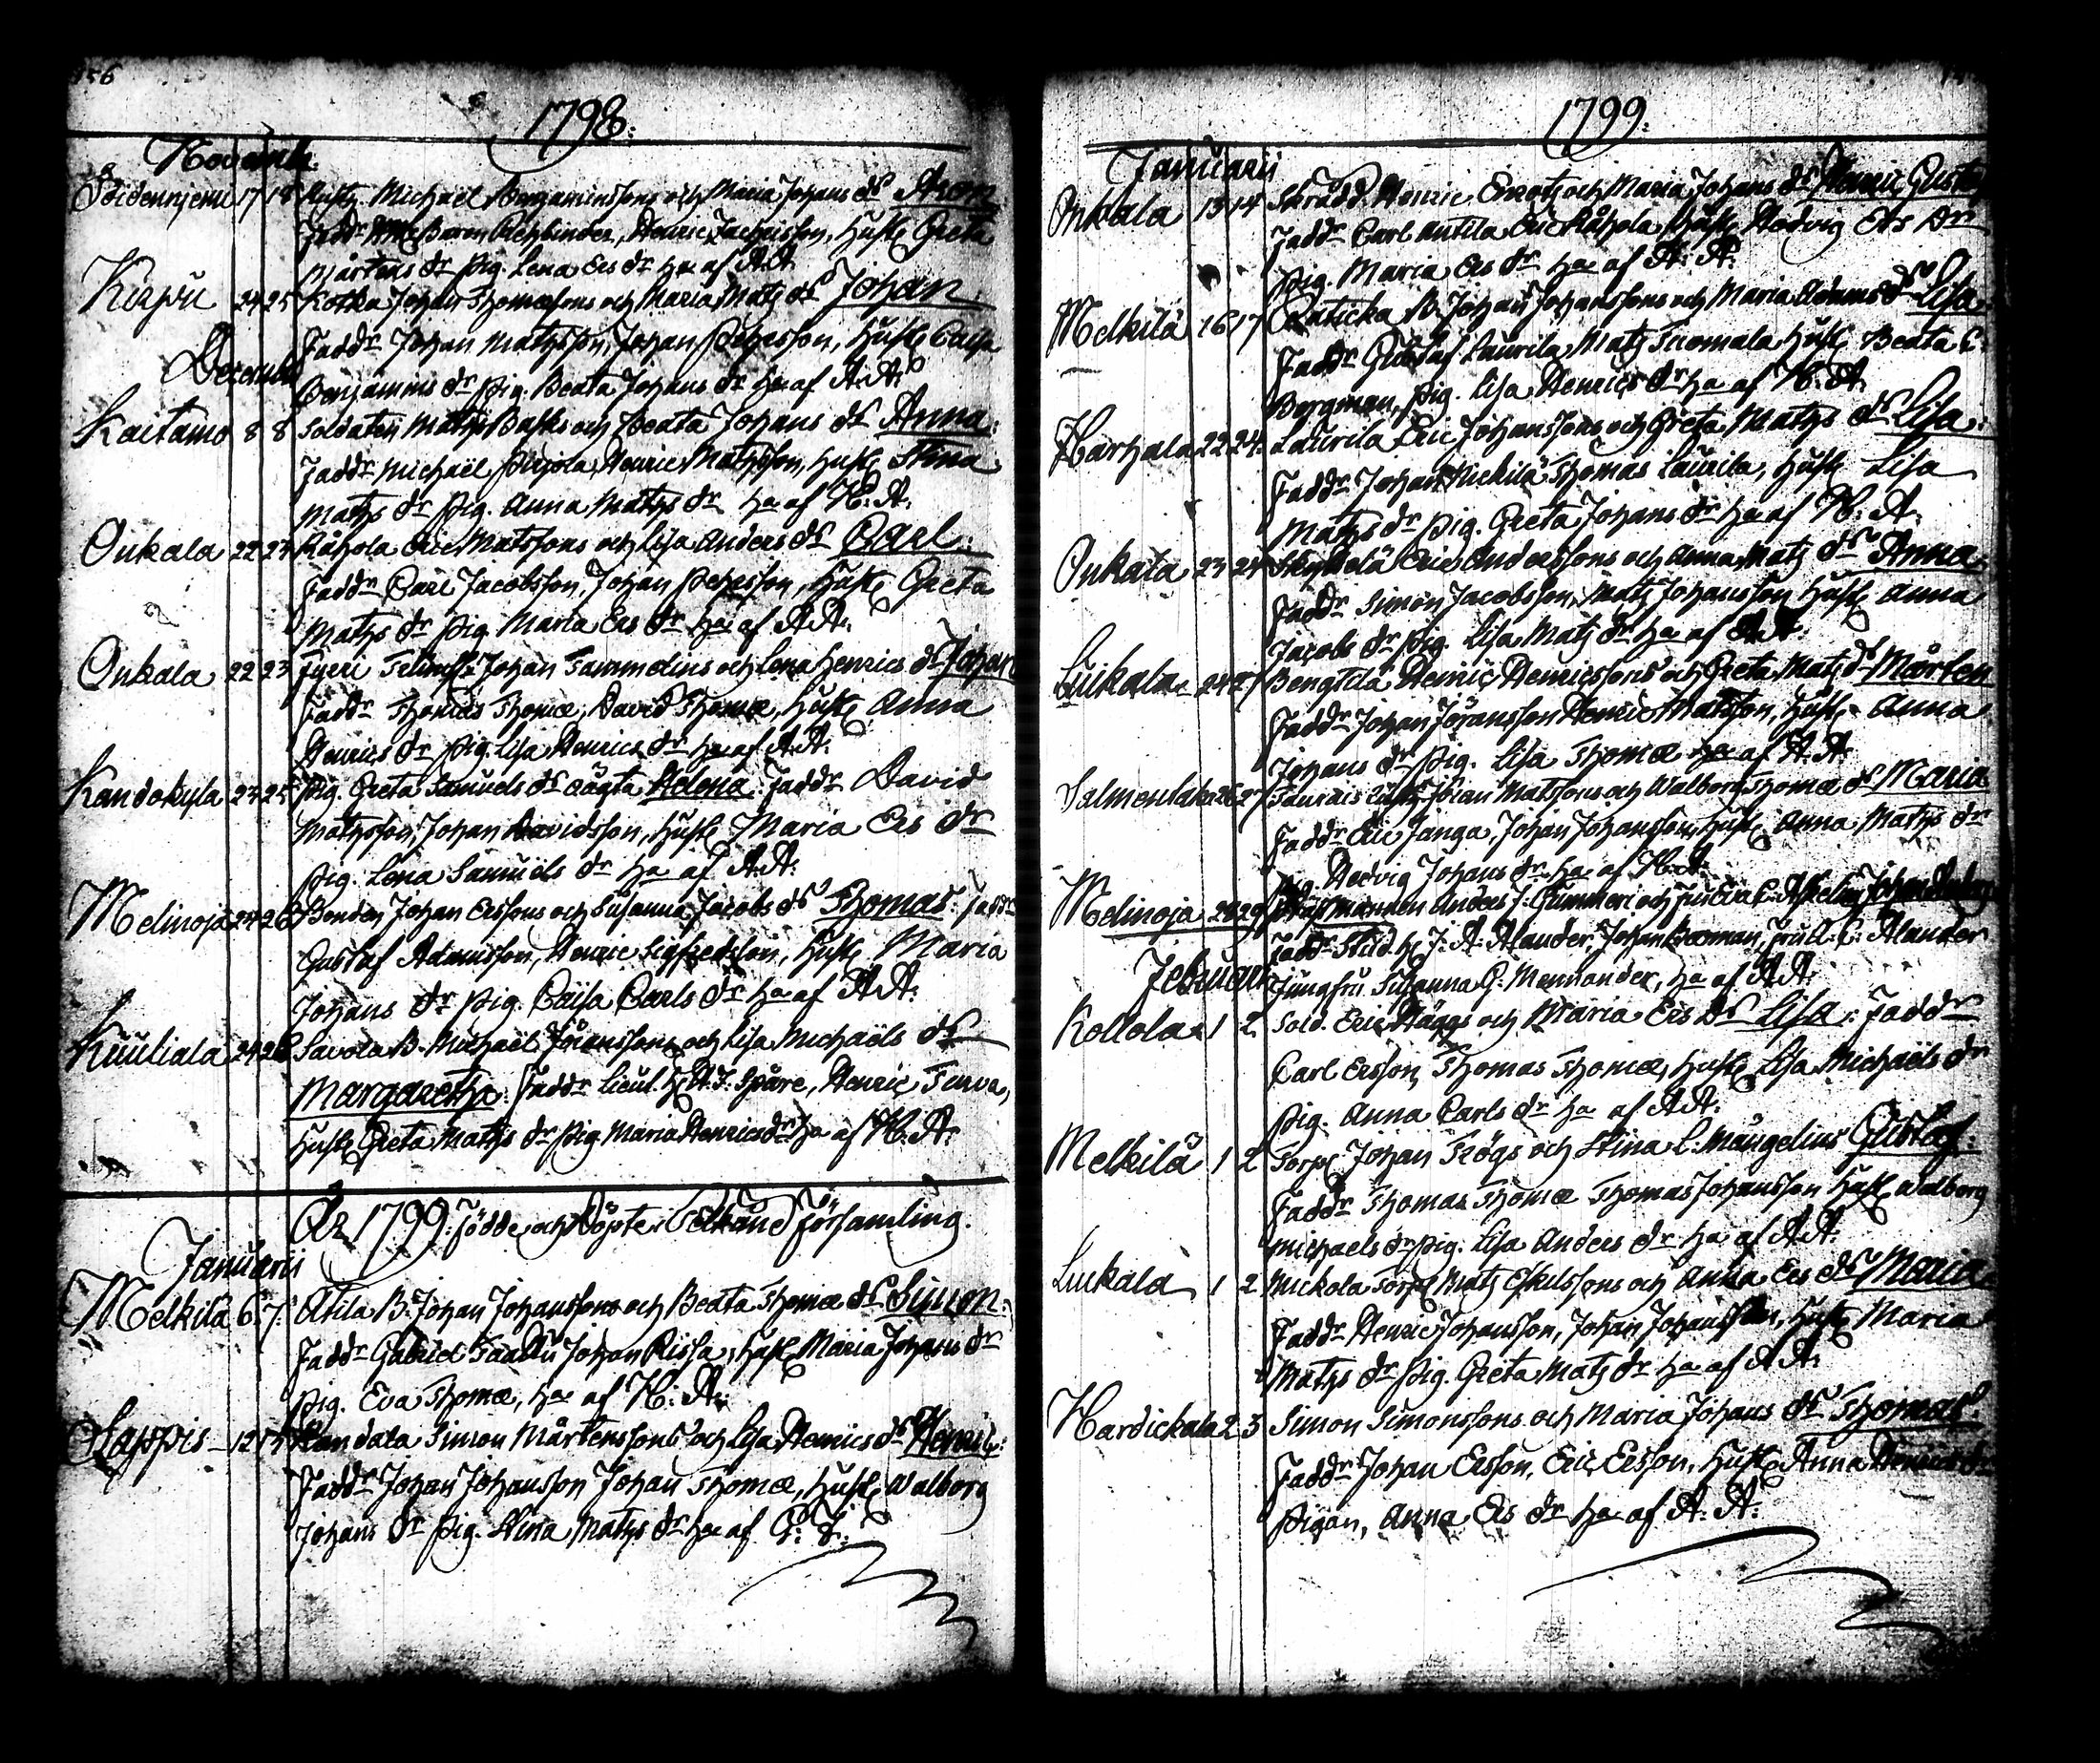 156
1798:
November:
17 18 Michaël Benjaminssons och Maria Johans ds Aron
Faddr Baron Rehbinder, Henric Zachrisson, Hust Greta
Mårtens dr Pig. Lena Ers dr Hae af A. A.
24 25 Kotka Johan Thomæsons och Maria Mats ds Johan
Faddr Johan Mathsson, Johan Pehrsson, Hust Caisa
December
Benjamins dr Pig. Beata Johans dr Hae af A. A.
Kaitamo 8 8 Soldaten Maths och Beata Johans ds Anna:
Faddr Michaël Pirjola, Henric Mathsson, Hust Stina
Maths dr Pig. Anna Maths dr Hae af H: A:
Onkala 22 23 Råhola Eric Matssons och Lisa Anders ds Carl:
Faddr Carl Jacobsson, Johan Pehrsson, Hust Greta
Maths dr Pig. Maria Ers dr Hae af A. A:
Onkala 22 23 Johan Tammelins och Lena Henrics ds Johan
Faddr Thomas Thomæ, David Thomæ, Hust Anna
Henrics dr Pig. Lisa Henrics dr Hae af A. A:
Kandokyla 23 25 Pig. Greta Samuels ds oägta Helena. Faddr David
Mathsson, Johan Davidsson, Hust Maria Ers dr
Pig. Lena Samuels dr Hae af A. A:
Melinoja 24 26 Bonden Johan Erssons och Susanna Jacobs ds Thomas. Faddr
Gustaf Adamsson, Henric Sigfredsson, Hust Maria
Johans dr Pig. Caisa Carls dr Hae af A. A:
Kuuliala 24 26 Savola B. Michaël Jöranssons och Lisa Michaëls ds
Margaretha: Faddr Lieut. H. J. Spåre, Henric Turva,
Hust Greta Maths dr Pig. Maria Henrics dr Hae af H. A:
År 1799: Födde och Döpte i Pelkäne Församling.
Januarii
Melkilä 6. 7. Atila B. Johan Johanssons och Beata Thomæ ds Simon:
Faddr Gabriel Johan Rissa, Hust Maria Johans dr
Pig. Eva Thomæ, Hae af H: A:
Lappis 12 13 Simon Mårtenssons och Lisa Henrics ds Henric:
Faddr Johan Johansson Johan Thomæ, Hust Walborg
Johans dr Pig. Stina Maths dr Hae af
1799:
Januarii
Onkala 13 14 Skrädd. Henric och Maria Johans ds Henric Gustaf
Faddr Carl Antila Eric Råhola Hust Hedvig Ers Dr
Pig. Maria Ers dr Hae af A: A:
Melkilä 16 17 B. Johan Johanssons och Maria Adams ds Lisa
Faddr Gustaf Laurila Mats Tuomala Hust Beata
Bergman, Pig. Lisa Henrics dr Hae af H. A.
Harhala 22 24 Laurila Eric Johanssons och Greta Maths ds Lisa:
Faddr Johan Thomas Laurila, Hust Lisa
Maths dr Pig. Greta Johans dr Hae af H: A:
Onkala 23 24 Eric Anderssons och Anna Mats ds Anna
Faddr Simon Jacobsson, Mats Johansson Hust Anna
Jacobs dr Pig. Lisa Mats dr Hae af A. A:
Luikala 24 27 Bengtilä Henric Henricssons och Greta Mats ds Mårten
Faddr Johan Jöransson Henric Matsson, Hust Anna
Johans dr Pig. Lisa Thomæ Hae af A. A:
26 27 Johan Matssons och Walborg Thomæ ds Maria
Faddr Eric Janga, Johan Johansson, Hust Anna Maths dr
Pig. Hedvig Johans dr Hae af H. A:
Melinoja 28 29 Anders J. Gummeri och Fru Eva C. Johan Anders
Faddr Stud. H. J. A. Alander, Johan Fru A. C. Alander
Februarii
Jungfru Susanna G. Mennander, Hae af A. A:
Kollola 1 2 Sold. Eric Häggs och Maria Ers ds Lisa: Faddr
Carl Ersson, Thomas Thomæ, Hust Lisa Michaëls dr
Pig. Anna Carls dr Hae af A. A:
Melkilä 1 2 Torp. Johan Trögs och Stina C. Mångelius Gustaf:
Faddr Thomas Thomæ Thomas Johansson Hust Walborg
Michaels dr Pig. Lisa Anders dr Hae af A. A:
Luikala 1 2 Mickola Torp. Mats Eskilssons och Anna Ers ds Maria
Faddr Henric Johansson, Johan Johansson, Hust Maria
Maths dr Pig. Greta Mats dr Hae af A. A:
2 3 Simon Simonssons och Maria Johans ds Thomas:
Faddr Johan Ersson, Eric Ersson, Hust Anna Henrics dr
Pigan, Anna Ers dr Hae af A. A: